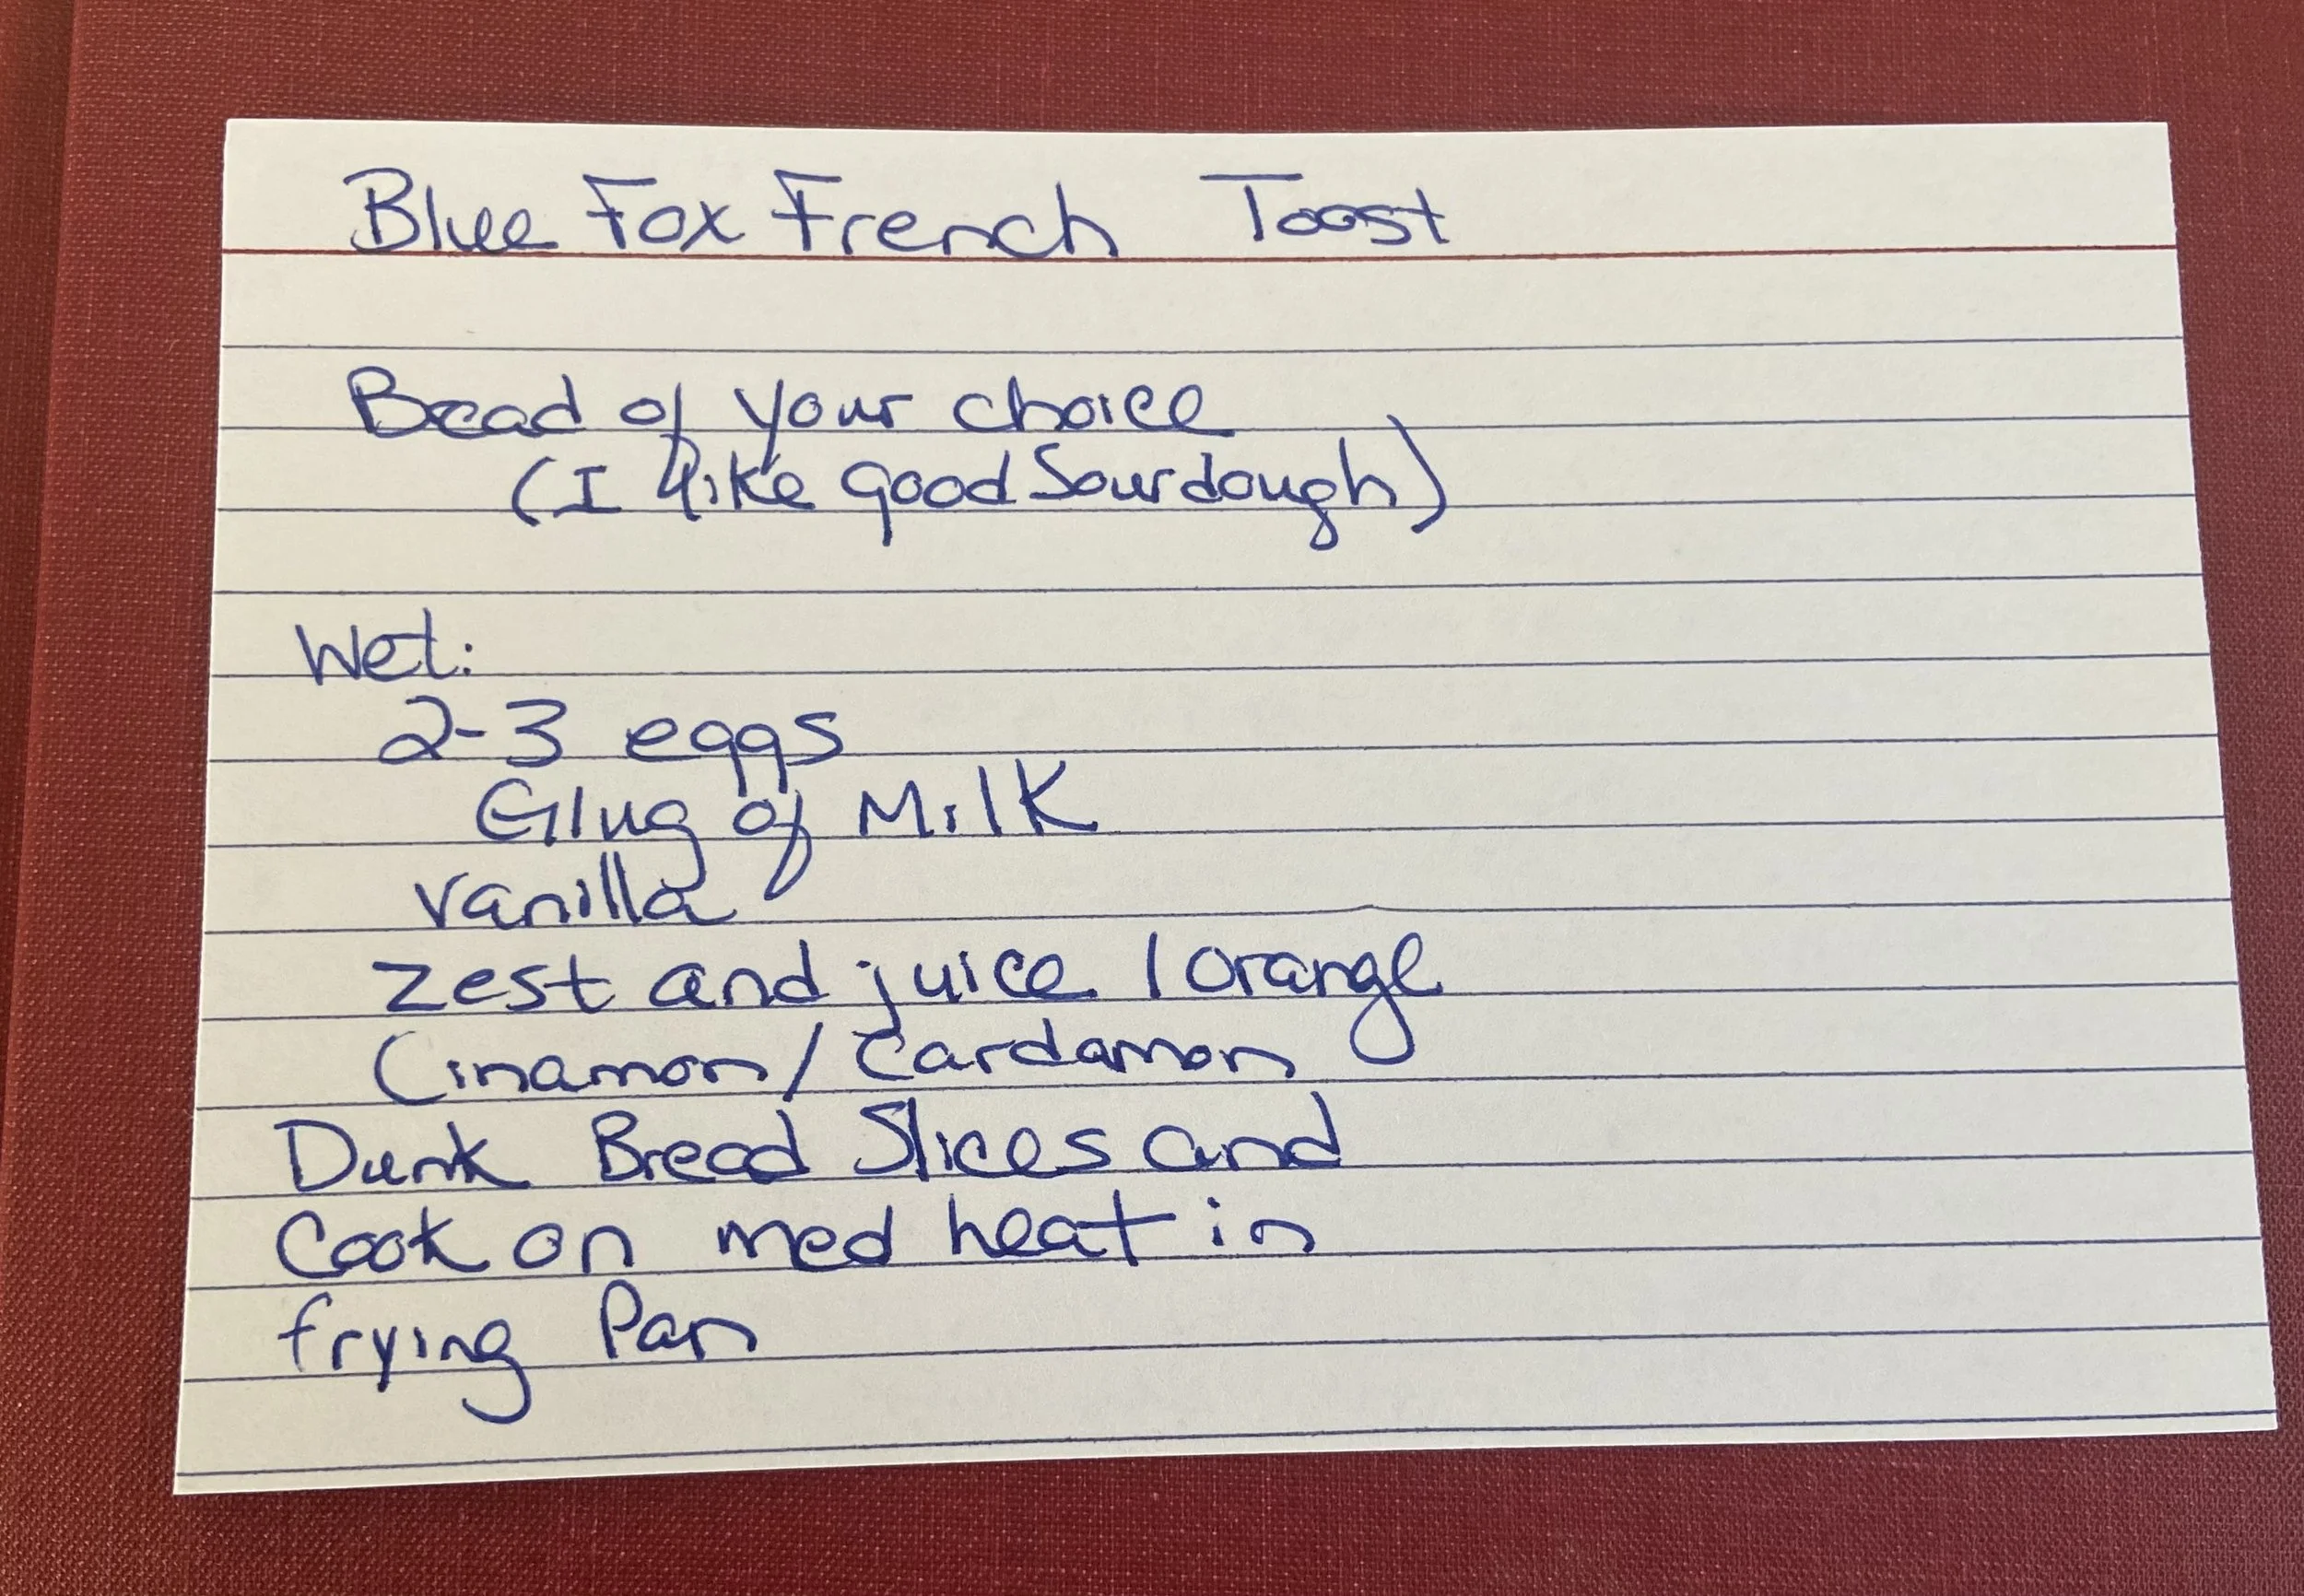 Blue Fox French Toast
Bread of your choice
(I like good Sourdough)
Wet:
2-3 eggs
Glug of Milk
Vanilla
zest and juice 1 orange
Cinamon/Cardamon
Dunk Bread Slices and
Cook on med heat in
frying Pan